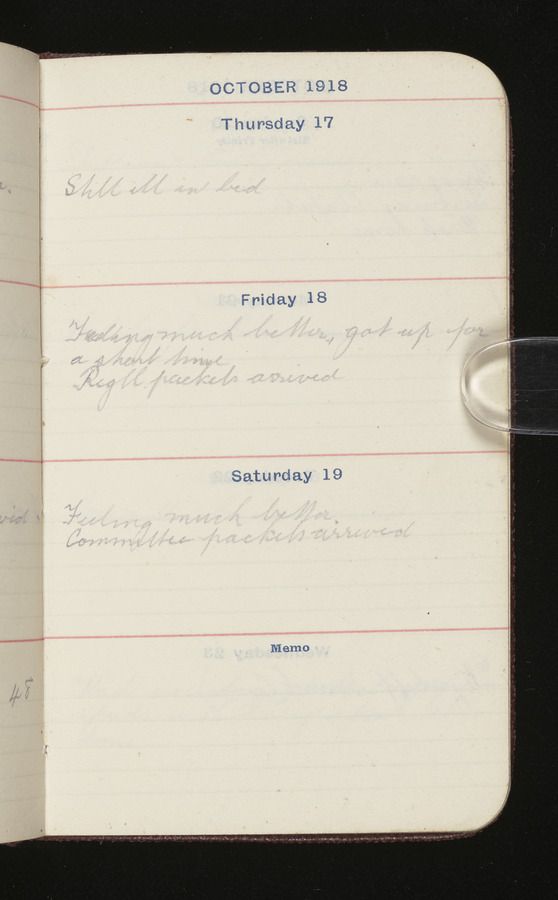 OCTOBER 1918
Thursday 17
Still ill in bed
Friday 18
Feeling much better, got up for
a short time
packets arrived
Saturday 19
Feeling much better.
Committee packets arrived
Memo
48